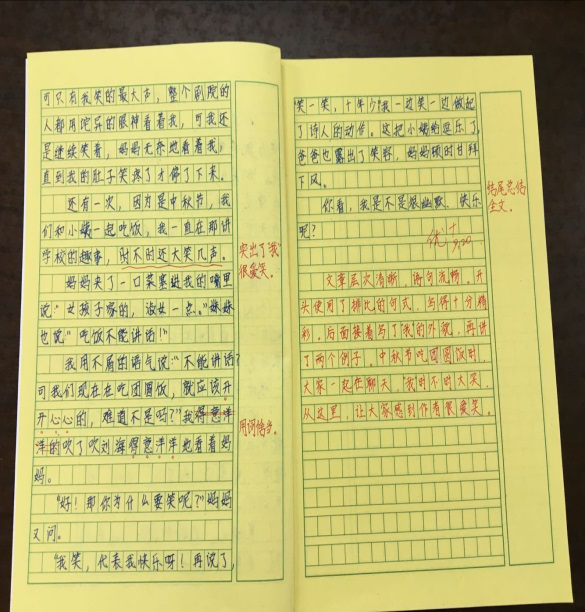 可只有我笑的最大声，整个剧院的
人都用诧异的眼神看着我，可我还
是继续笑着，妈妈无奈地看着我，
直到我的肚子笑疼了才停了下来。
还有一次，因为是中秋节，我
们和小姨一起吃饭，我一直在那讲
学校的趣事，时不时还大笑几声。
妈妈夹了一口菜塞进我的嘴里
说“女孩子家的，淑女一点。”妹妹
也说“吃饭不能讲话！”
我用不屑的语气说：“不能讲话？
可我们现在在吃团圆饭，就应该开
开心心的，难道不是吗？”我得意洋
洋的吹了吹刘海得意洋洋地看着妈
妈。
“好！那你为什么要笑呢？”妈妈
又问。
“我笑，代表我快乐呀！再说了，
突出了“我”
很爱笑。
用词恰当。
“笑一笑，十年少”我一边笑一边做起
了诗人的动作。这把小姨给逗乐了，
爸爸也露出了笑容，妈妈顿时甘拜
下风。
你看，我是不是很幽默、快乐
呢？
优+
9.20
结尾总结
全文。
文章层次清晰，语句流畅，开
头使用了排比的句式，写得十分精
彩，后面接着写了“我”的外貌，再讲
了两个例子，中秋节吃团圆饭时，
大家一起在聊天，“我时不时大笑，
从这里，让大家感到作者很爱笑。